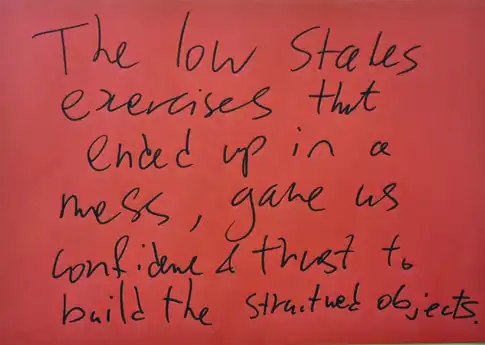 The low Stakes
exercises that
ended up in a
mess, gave us
confidence & trust to
build the structured objects.